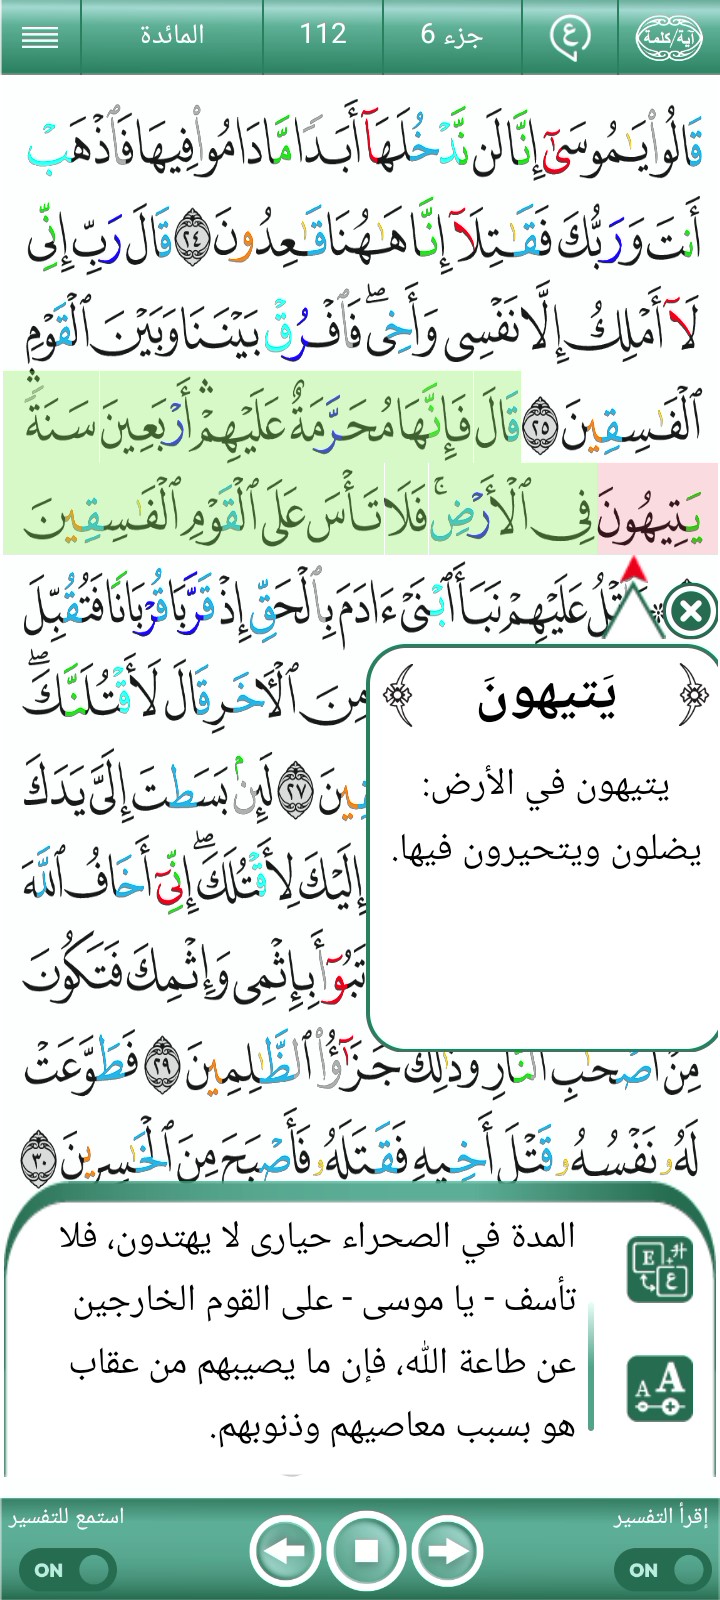 آية/كلمة
ع
جزء 6
112
المائدة
قَالُوا۟ يَـٰمُوسَىٰٓ إِنَّا لَن نَّدْخُلَهَآ أَبَدًا مَّا دَامُوا۟ فِيهَا فَٱذْهَبْ
أَنتَ وَرَبُّكَ فَقَـٰتِلَآ إِنَّا هَـٰهُنَا قَـٰعِدُونَ ٢٤ قَالَ رَبِّ إِنِّى
لَآ أَمْلِكُ إِلَّا نَفْسِى وَأَخِى ۖ فَٱفْرُقْ بَيْنَنَا وَبَيْنَ ٱلْقَوْمِ
ٱلْفَـٰسِقِينَ ٢٥ قَالَ فَإِنَّهَا مُحَرَّمَةٌ عَلَيْهِمْ ۛ أَرْبَعِينَ سَنَةً ۛ
يَتِيهُونَ فِى ٱلْأَرْضِ ۚ فَلَا تَأْسَ عَلَى ٱلْقَوْمِ ٱلْفَـٰسِقِينَ
عَلَيْهِمْ نَبَأَ ٱبْنَىْ ءَادَمَ بِٱلْحَقِّ إِذْ قَرَّبَا قُرْبَانًا فَتُقُبِّلَ
مِنَ ٱلْـَٔاخَرِ قَالَ لَأَقْتُلَنَّكَ ۖ
٢٧ لَئِنۢ بَسَطتَ إِلَىَّ يَدَكَ
إِلَيْكَ لِأَقْتُلَكَ ۖ إِنِّىٓ أَخَافُ ٱللَّهَ
تَبُوٓأَ بِإِثْمِى وَإِثْمِكَ فَتَكُونَ
مِنْ أَصْحَـٰبِ ٱلنَّارِ وَذَٰلِكَ جَزَٰٓؤُا۟ ٱلظَّـٰلِمِينَ ٢٩ فَطَوَّعَتْ
لَهُۥ نَفْسُهُۥ قَتْلَ أَخِيهِ فَقَتَلَهُۥ فَأَصْبَحَ مِنَ ٱلْخَـٰسِرِينَ ٣٠
يَتيهونَ
يتيهون في الأرض:
يضلون ويتحيرون فيها.
المدة في الصحراء حيارى لا يهتدون، فلا
تأسف - يا موسى - على القوم الخارجين
عن طاعة الله، فإن ما يصيبهم من عقاب
هو بسبب معاصيهم وذنوبهم.
إقرأ التفسير
استمع للتفسير
ON
ON